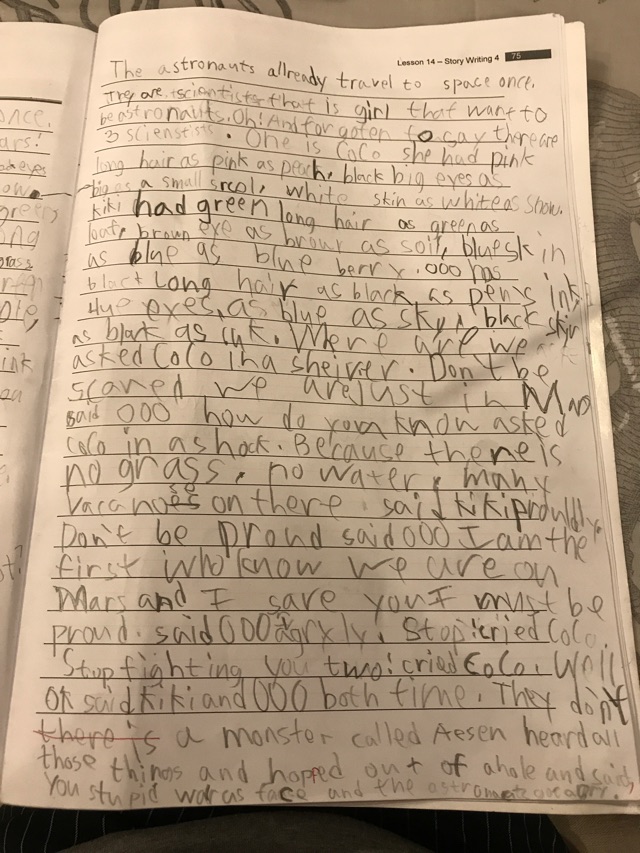 Lesson 14 – Story Writing 4 75
The astronauts allready travel to space once.
They are scientists that is girl that want to
be astronauts. Oh! And forgoten to say there are
3 scienstists. One is CoCo she had pink
long hair as pink as peach, black big eyes as
big as a small srcol, white skin as white as show.
kiki had green long hair as green as
leaf, brown eye as brour as soil, blue skin
as blue as blue berry. OOO has
black Long hair as black as pen's ink
blue eyes, as blue as sky, black skin
as black as ink. Where are we
asked CoCo in a sheirer. Don't be
scared we are just in Mars
said OOO how do you know asked
CoCo in a shock. Because there is
no grass, no water, many
vacanoes on there. said kiki proudly.
Don't be proud said OOO I am the
first who know we are on
Mars and I save you I must be
proud. said OOO agrxly. Stop! cried CoCo.
Stop fighting you two! cried CoCo. Well
OK said kiki and OOO both time. They don't
there is a monster called Aesen heard all
those things and hopped out of a hole and said,
You stupid face and the
once.
ars!
green
ong
grass
ink